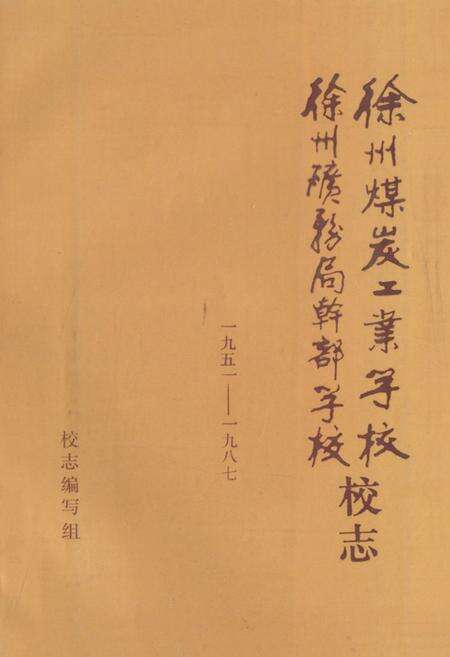 徐州煤炭工业学校
徐州礦務局幹部学校
校志
一九五一——一九八七
校志编写组